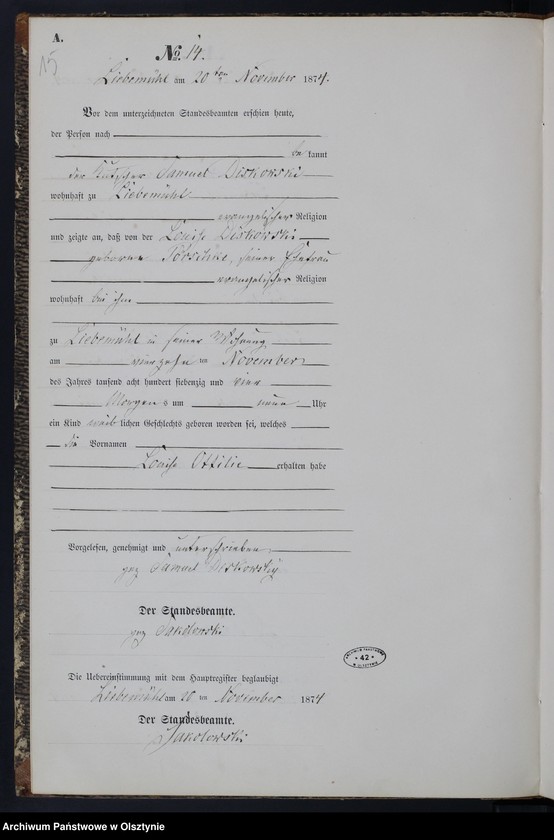 A.
15
No. 14.
Liebemühl am 20ten November 1874.
Vor dem unterzeichneten Standesbeamten erschien heute,
der Person nach
be kannt
der Kutscher Samuel Diskowski
wohnhaft zu Liebemühl
evangelischer Religion
und zeigte an, daß von der Louise Diskowski
geborene seiner Ehefrau
evangelischer Religion
wohnhaft bei ihm
zu Liebemühl in seiner Wohnung
am vierzehn ten November
des Jahres tausend acht hundert siebenzig und vier
Morgen s um neun Uhr
ein Kind weib lichen Geschlechts geboren worden sei, welches
die Vornamen
Louise Ottilie erhalten habe
Vorgelesen, genehmigt und unterschrieben
gez Samuel Diskowsky
Der Standesbeamte.
gez Sakolowski
Die Uebereinstimmung mit dem Hauptregister beglaubigt
Liebemühl am 20 ten November 1874
Der Standesbeamte.
Sakolowski
ARCHIWUM PAŃSTWOWE
* 42 *
W OLSZTYNIE
Archiwum Państwowe w Olsztynie